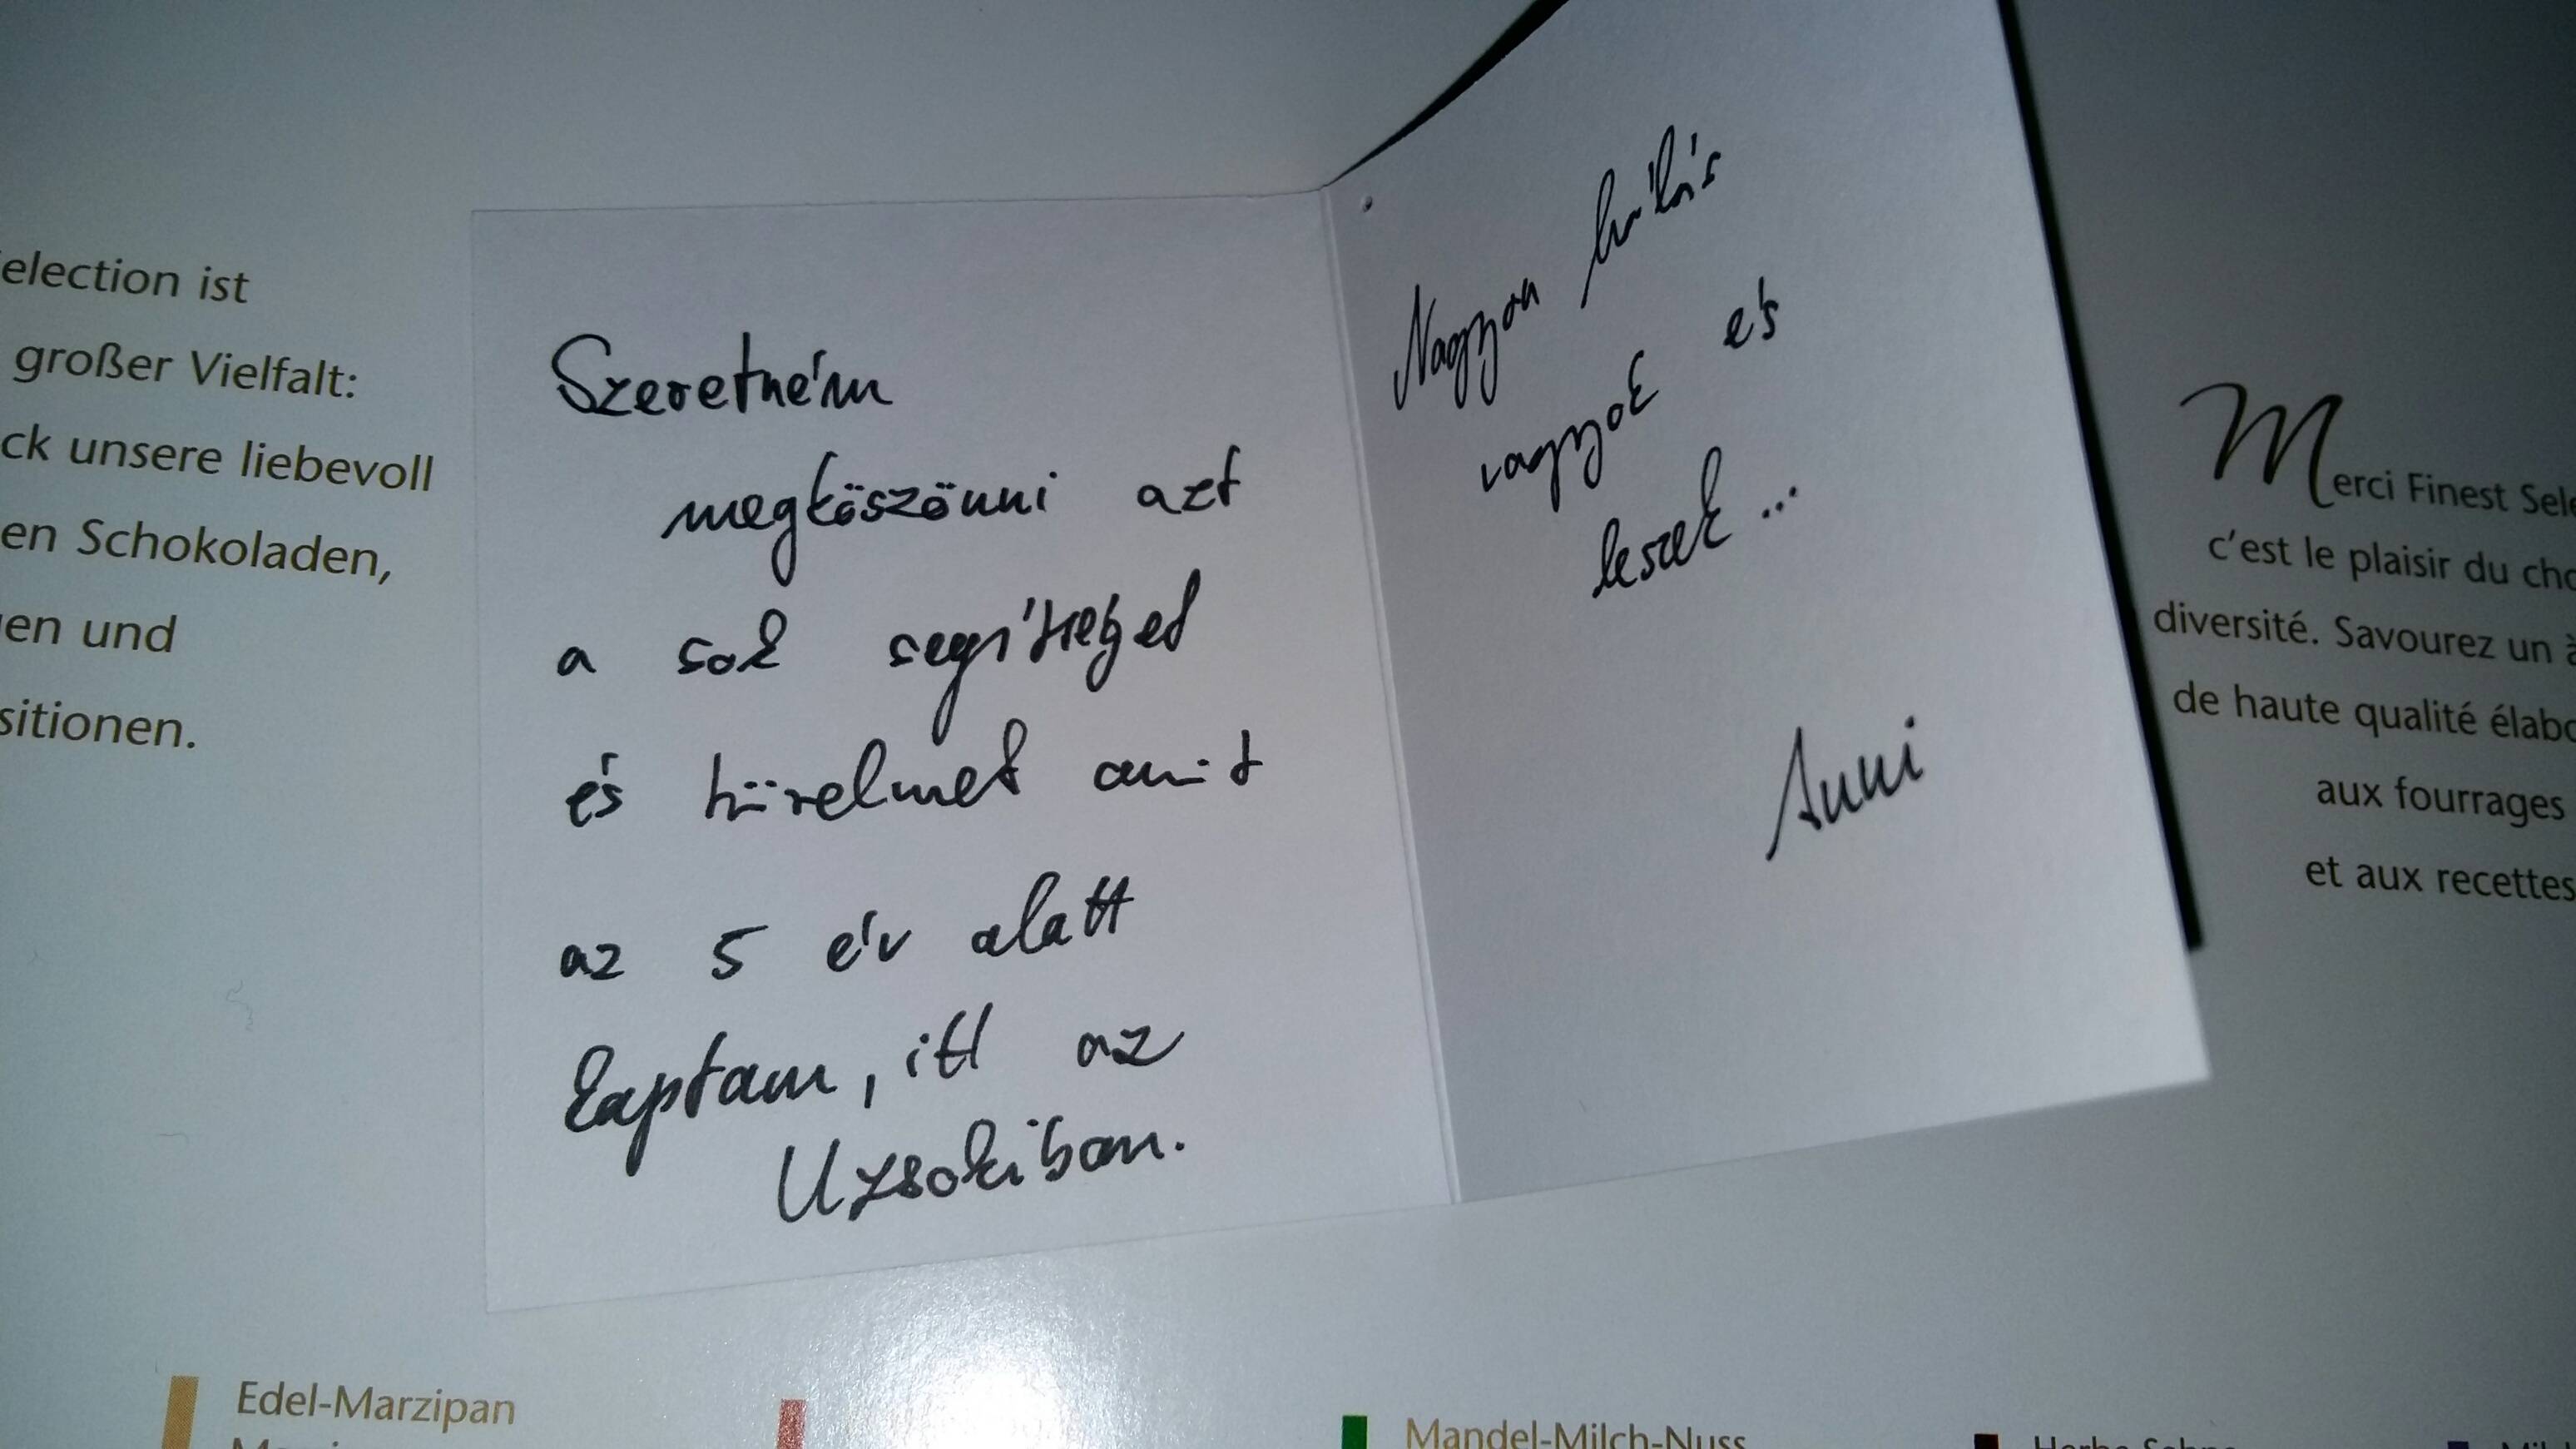 election ist
großer Vielfalt:
ck unsere liebevoll
en Schokoladen,
en und
sitionen.
Szeretném
megköszönni azt
a sok segítséget
és türelmet amit
az 5 év alatt
kaptam, itt az
Uzsokiban.
Nagyon hálás
vagyok és
leszek...
Anni
Merci Finest Sele
c'est le plaisir du cho
diversité. Savourez un a
de haute qualité élabo
aux fourrages
et aux recettes
Edel-Marzipan
Mandel-Milch-Nuss